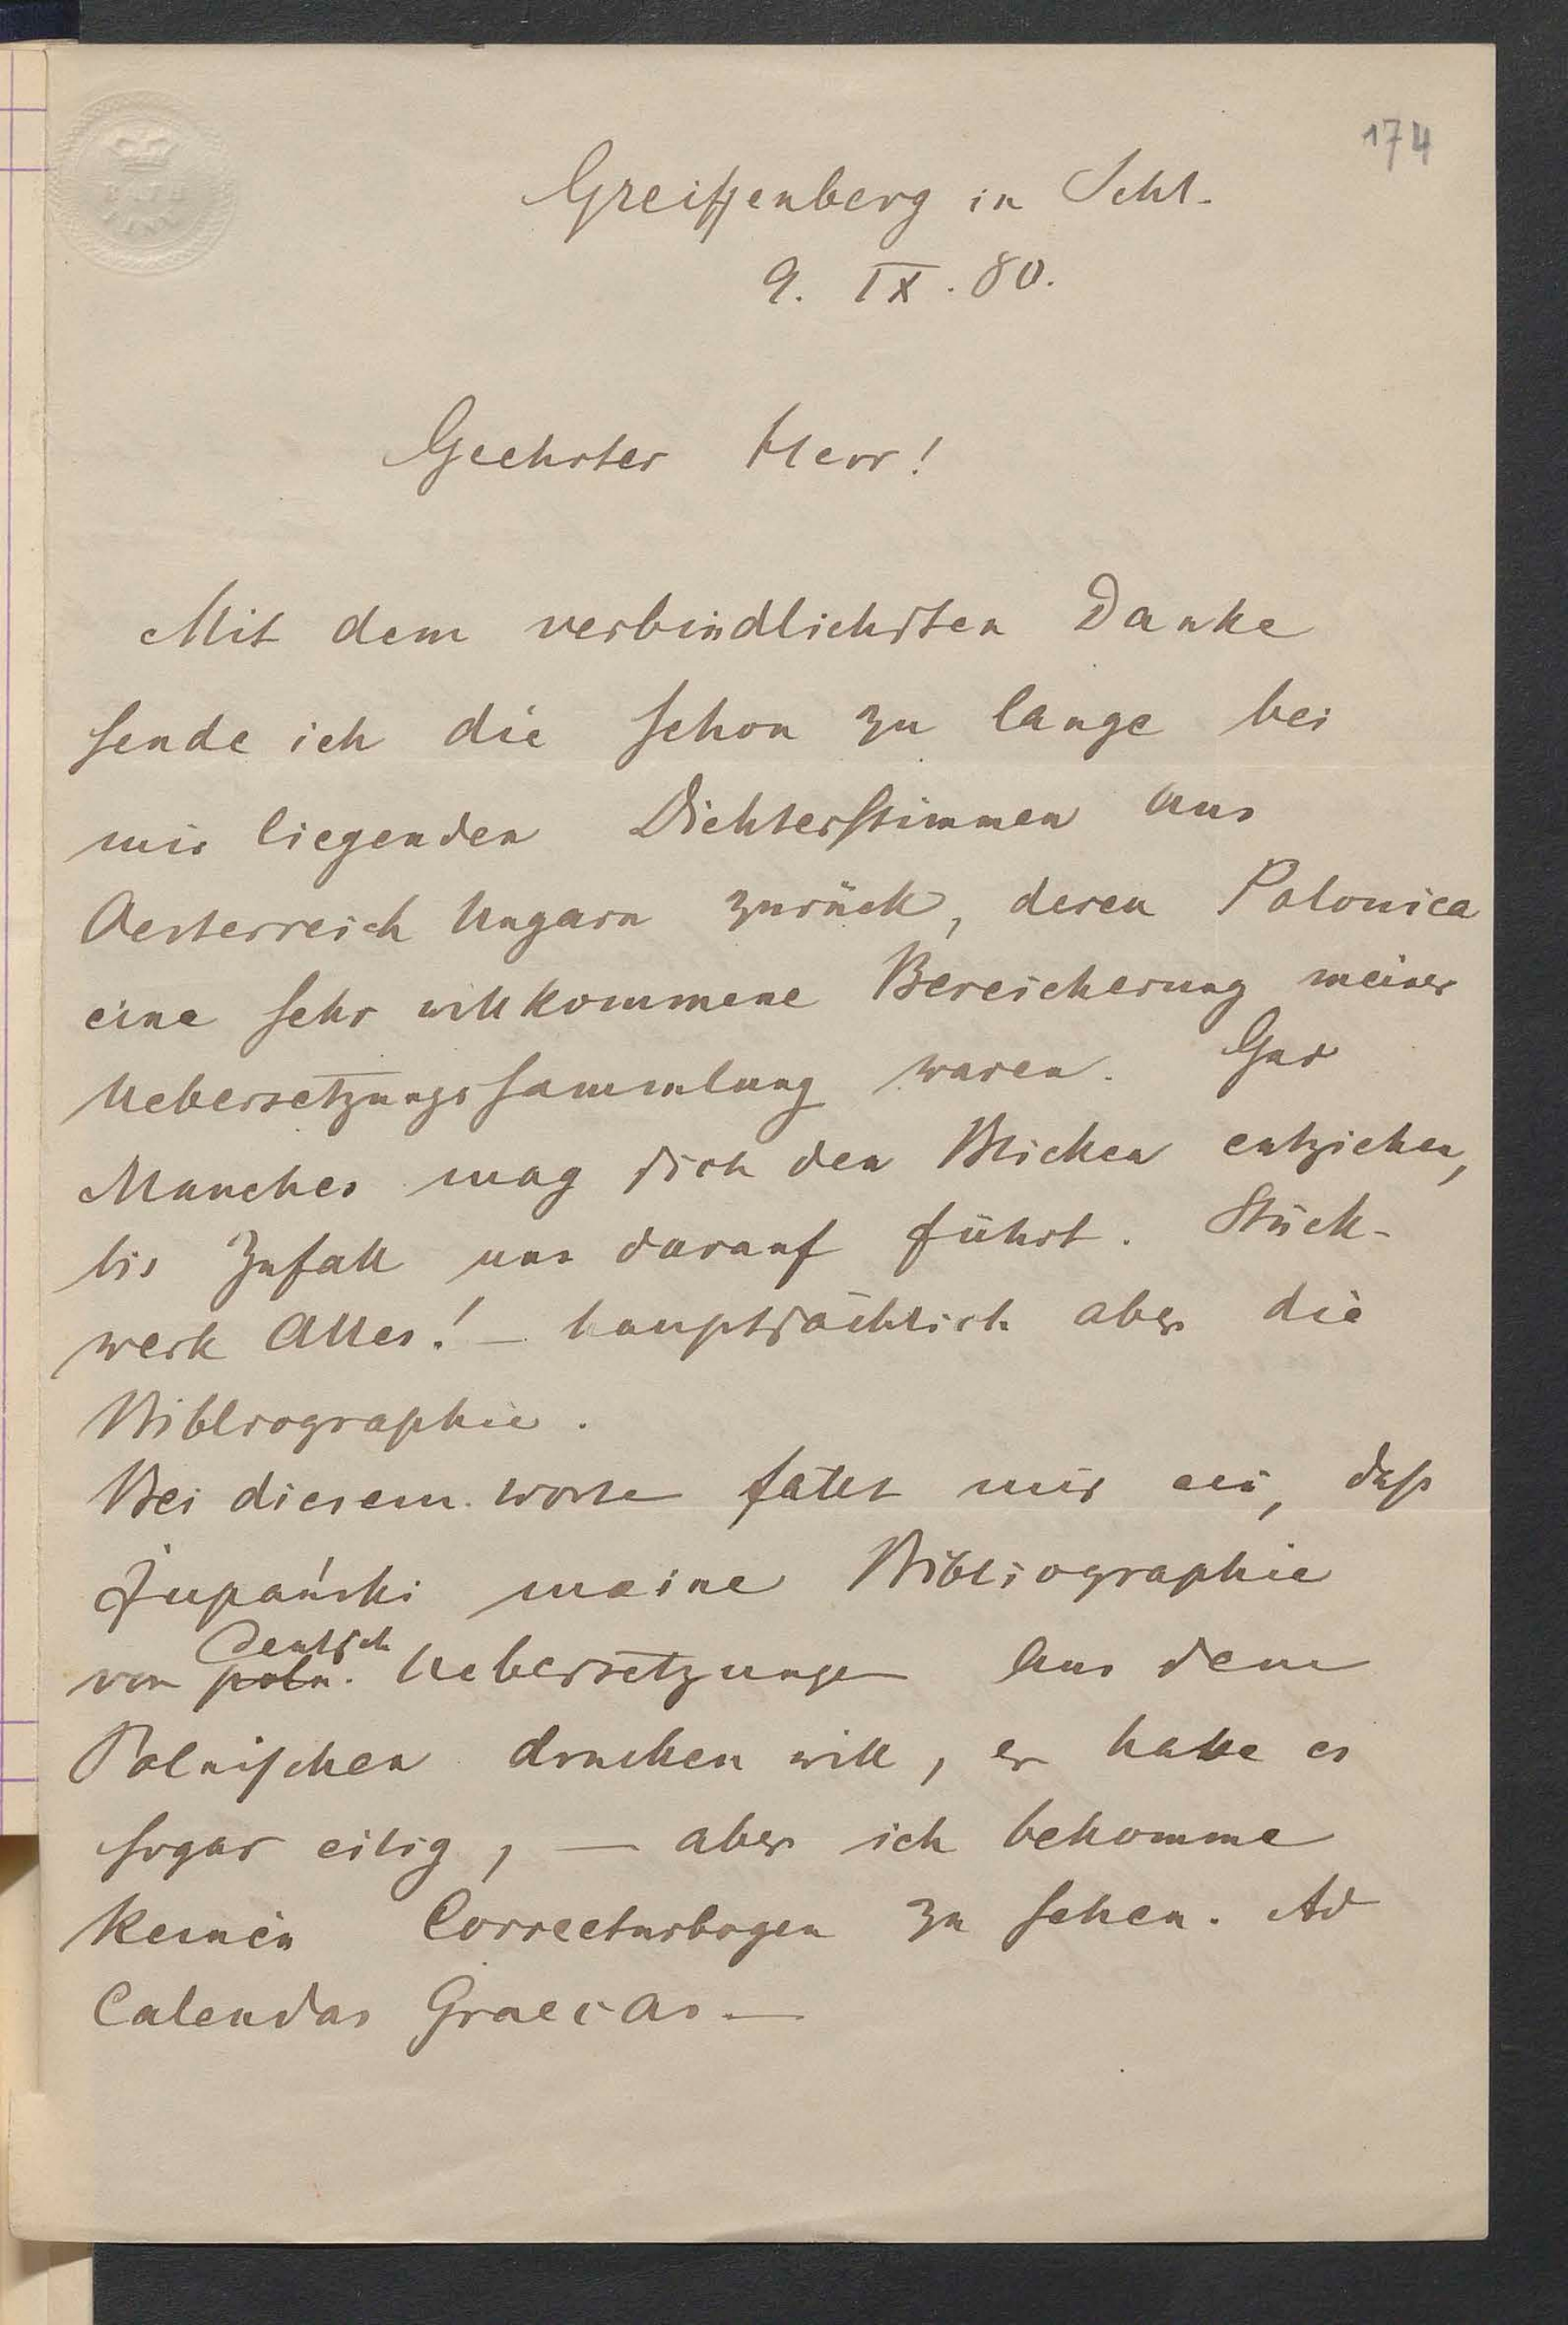 174
Greiffenberg in Schl.
9. IX. 80.
Geehrter Herr!
Mit dem verbindlichsten Danke
sende ich die schon zu lange bei
mir liegenden Dichterstimmen aus
Oesterreich Ungarn zurück, deren Polonica
eine sehr willkommene Bereicherung meiner
Uebersetzungssammlung waren. Gar
Manches mag sich den Blicken entziehen,
bis Zufall uns darauf führt. Stück-
werk Alles! — hauptsächlich aber die
Bibliographie.
Bei diesem Worte fällt mir ein, daß
Żupański meine Bibliographie
deutsch
von poln. Uebersetzungen aus dem
Polnischen drucken will, er habe es
sogar eilig, — aber ich bekomme
keinen Correcturbogen zu sehen. Ad
Calendas Graecas —